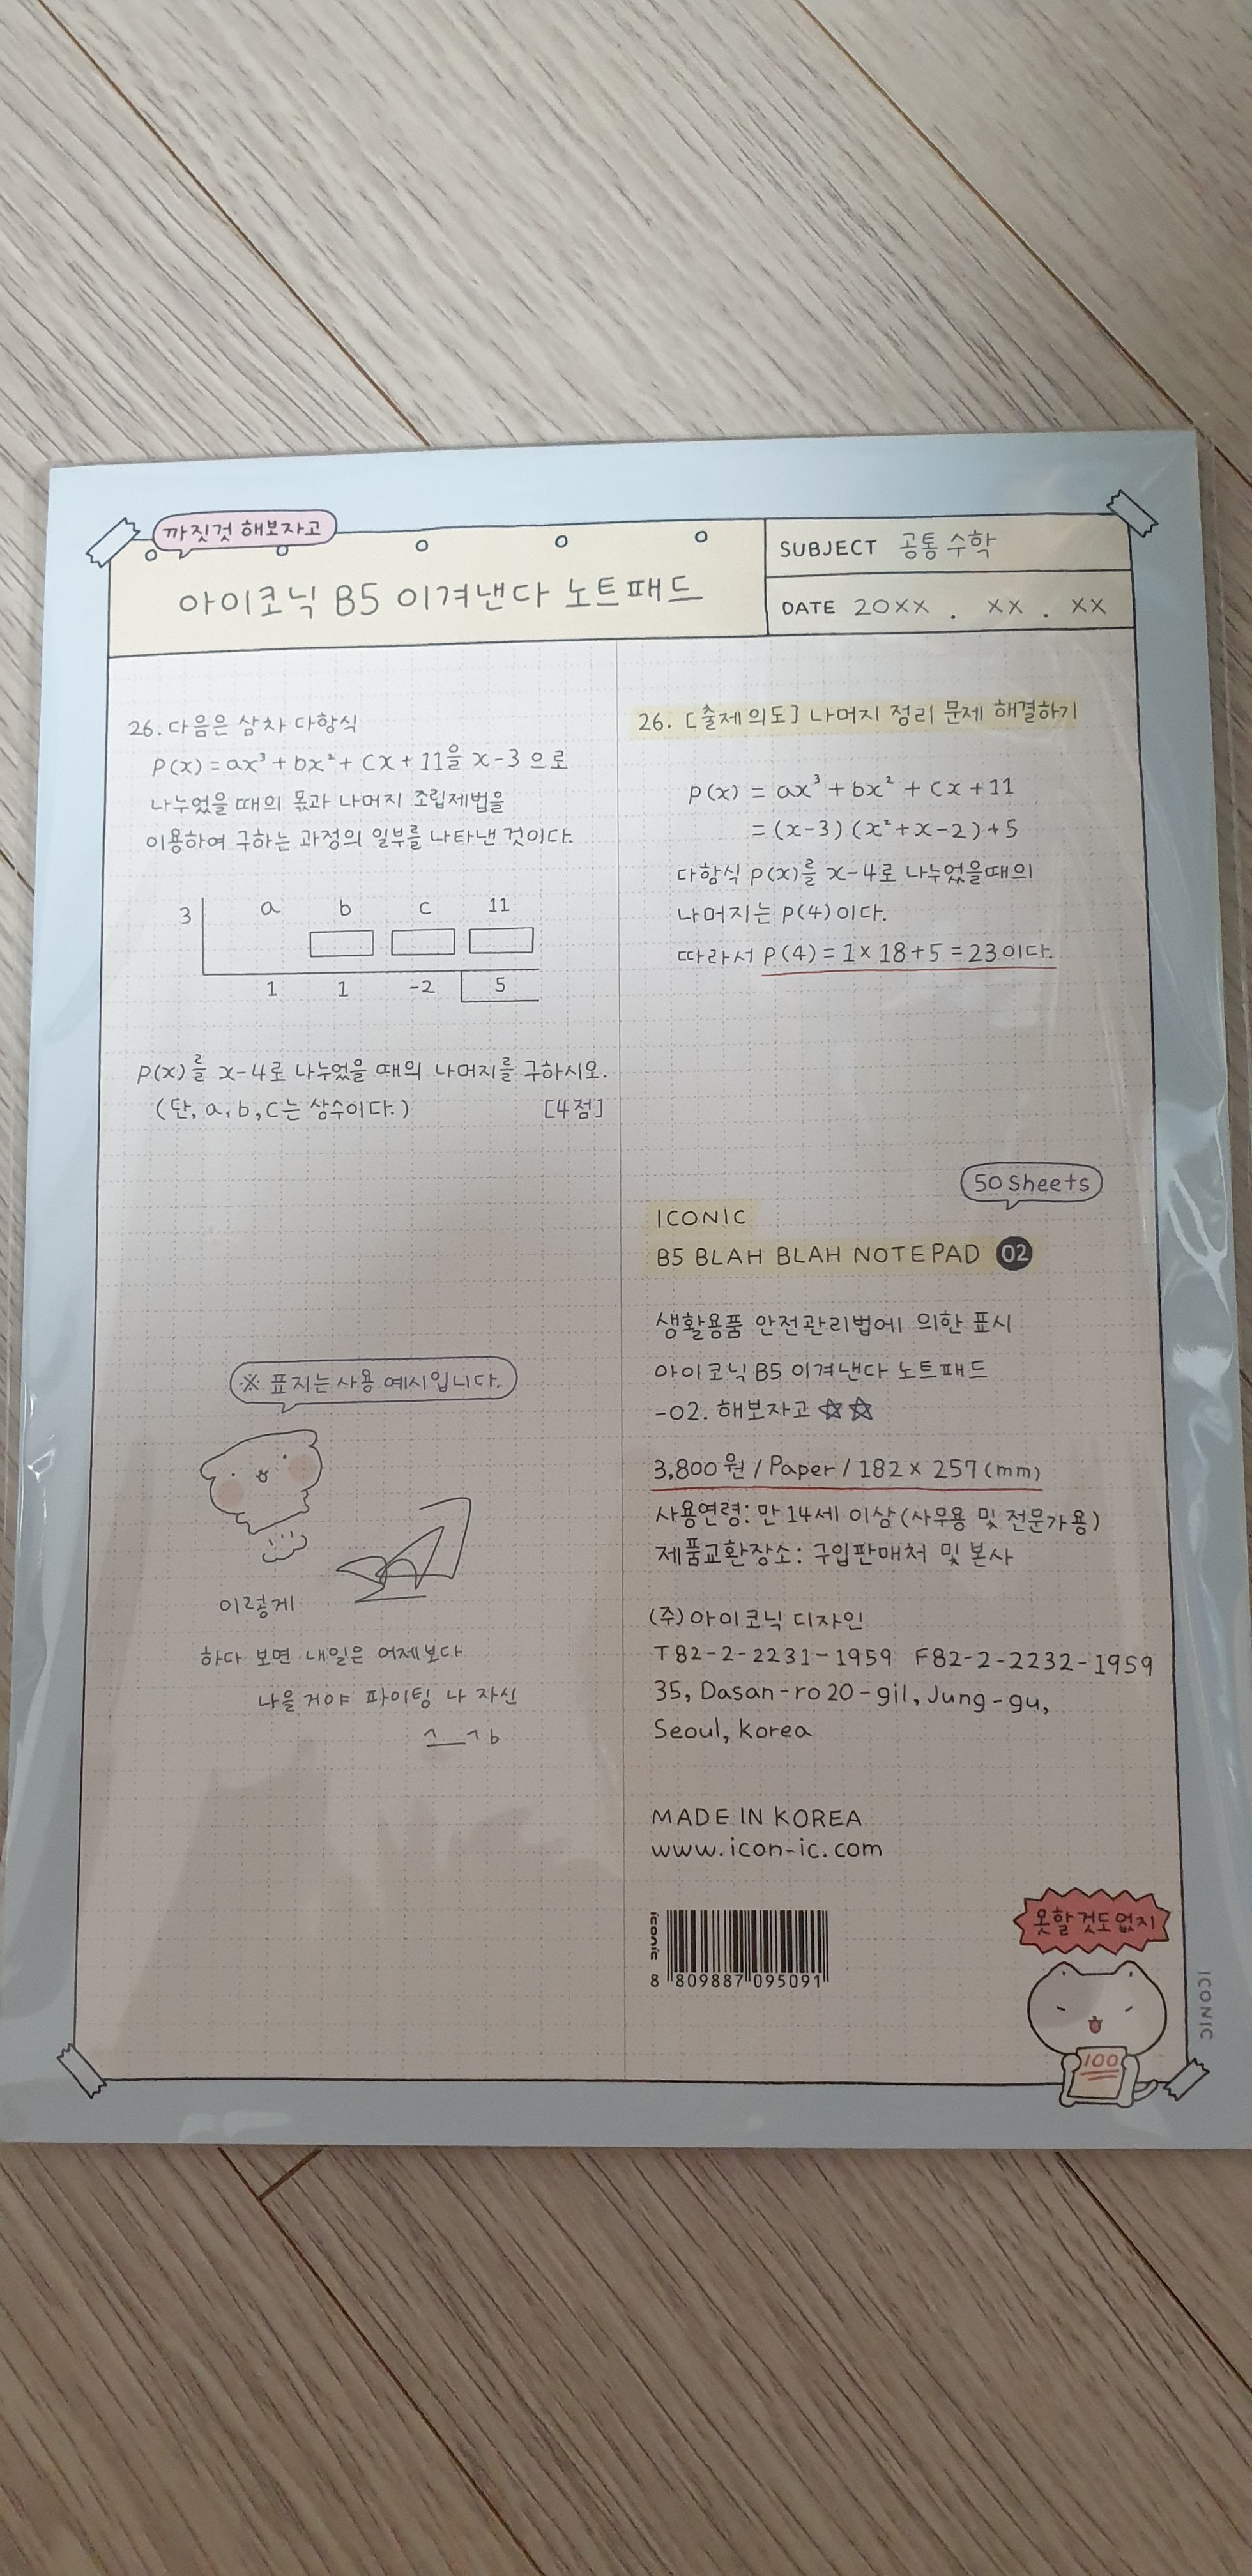 까짓것 해보자고
아이코닉 B5 이겨낸다 노트패드
SUBJECT 공통 수학
DATE 20XX . XX . XX
26. 다음은 삼차 다항식
P(x) = ax³ + bx² + cx + 11을 x-3 으로
나누었을 때의 몫과 나머지 조립제법을
이용하여 구하는 과정의 일부를 나타낸 것이다.
3 a b c 11
1 1 -2 5
P(x)를 x-4로 나누었을 때의 나머지를 구하시오.
(단, a, b, c는 상수이다.) [4점]
※ 표지는 사용 예시입니다.
이렇게
하다 보면 내일은 어제보다
나을거야 파이팅 나 자신
26. [출제의도] 나머지 정리 문제 해결하기
P(x) = ax³ + bx² + cx + 11
= (x-3) (x²+x-2)+5
다항식 P(x)를 x-4로 나누었을때의
나머지는 P(4)이다.
따라서 P(4) = 1 x 18+5 = 23이다.
50 sheets
ICONIC
B5 BLAH BLAH NOTEPAD 02
생활용품 안전관리법에 의한 표시
아이코닉 B5 이겨낸다 노트패드
-02. 해보자고 ☆☆
3,800원 / Paper / 182 x 257 (mm)
사용연령: 만 14세 이상 (사무용 및 전문가용)
제품교환장소: 구입판매처 및 본사
(주)아이코닉 디자인
T82-2-2231-1959 F82-2-2232-1959
35, Dasan-ro 20-gil, Jung-gu,
Seoul, Korea
MADE IN KOREA
www.icon-ic.com
iconic
8 809887 095091
못할것도없지
100
ICONIC